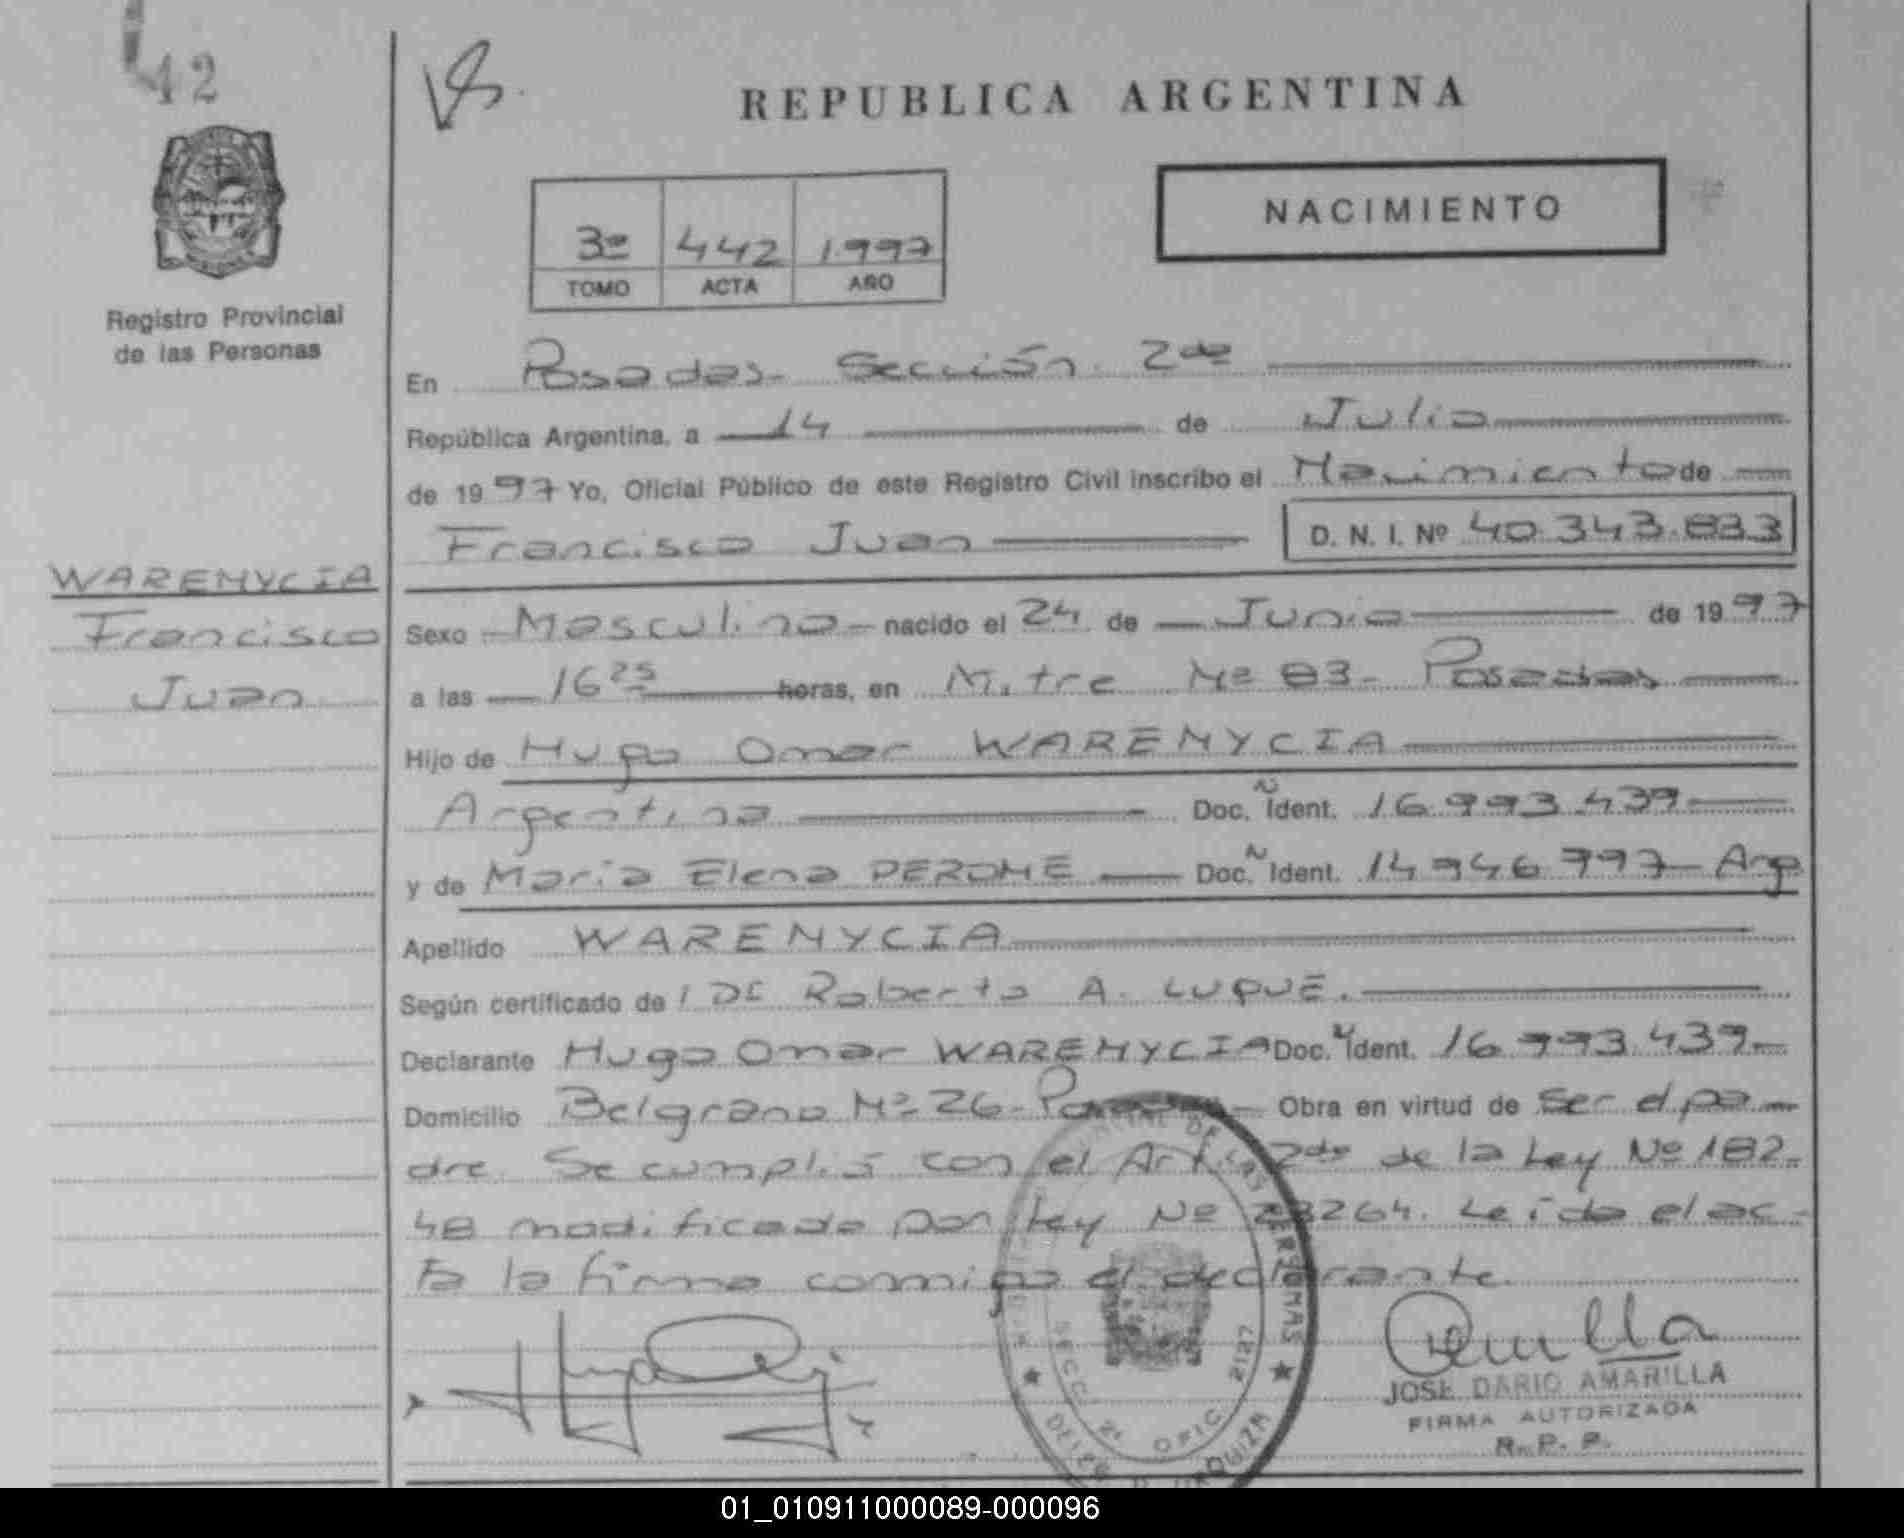 12
REPUBLICA ARGENTINA
NACIMIENTO
3º 442 1.997
TOMO ACTA AÑO
Registro Provincial
de las Personas
En Posadas - Sección. 2da
República Argentina, a 14 de Julio
de 1997 Yo, Oficial Público de este Registro Civil inscribo el Nacimiento de
Francisco Juan D. N. I. Nº 40.343.833
WARENYCIA
Francisco
Juan
Sexo Masculino nacido el 24 de Junio de 1997
a las 16 25 horas, en Mitre Nº 83 - Posadas
Hijo de Hugo Omar WARENYCIA
Argentina Doc. Ñ Ident. 16.993.439
y de María Elena PERONE Doc. Ñ Ident. 14946797 Arg
Apellido WARENYCIA
Según certificado de Roberto A. LUQUE.
Declarante Hugo Omar WARENYCIA Doc. Ident. 16.993.439
Domicilio Belgrano Nº 26 - Obra en virtud de ser el pa-
dre. Se cumplió con el Art. 2do de la Ley Nº 182-
48 modificado por Ley Nº 23264. Leída el ac-
ta la firma conmigo el declarante.
DE LAS PERSONAS
SECC. 2ª OFIC. 2127
JOSE DARIO AMARILLA
FIRMA AUTORIZADA
R. P. P.
01_010911000089-000096